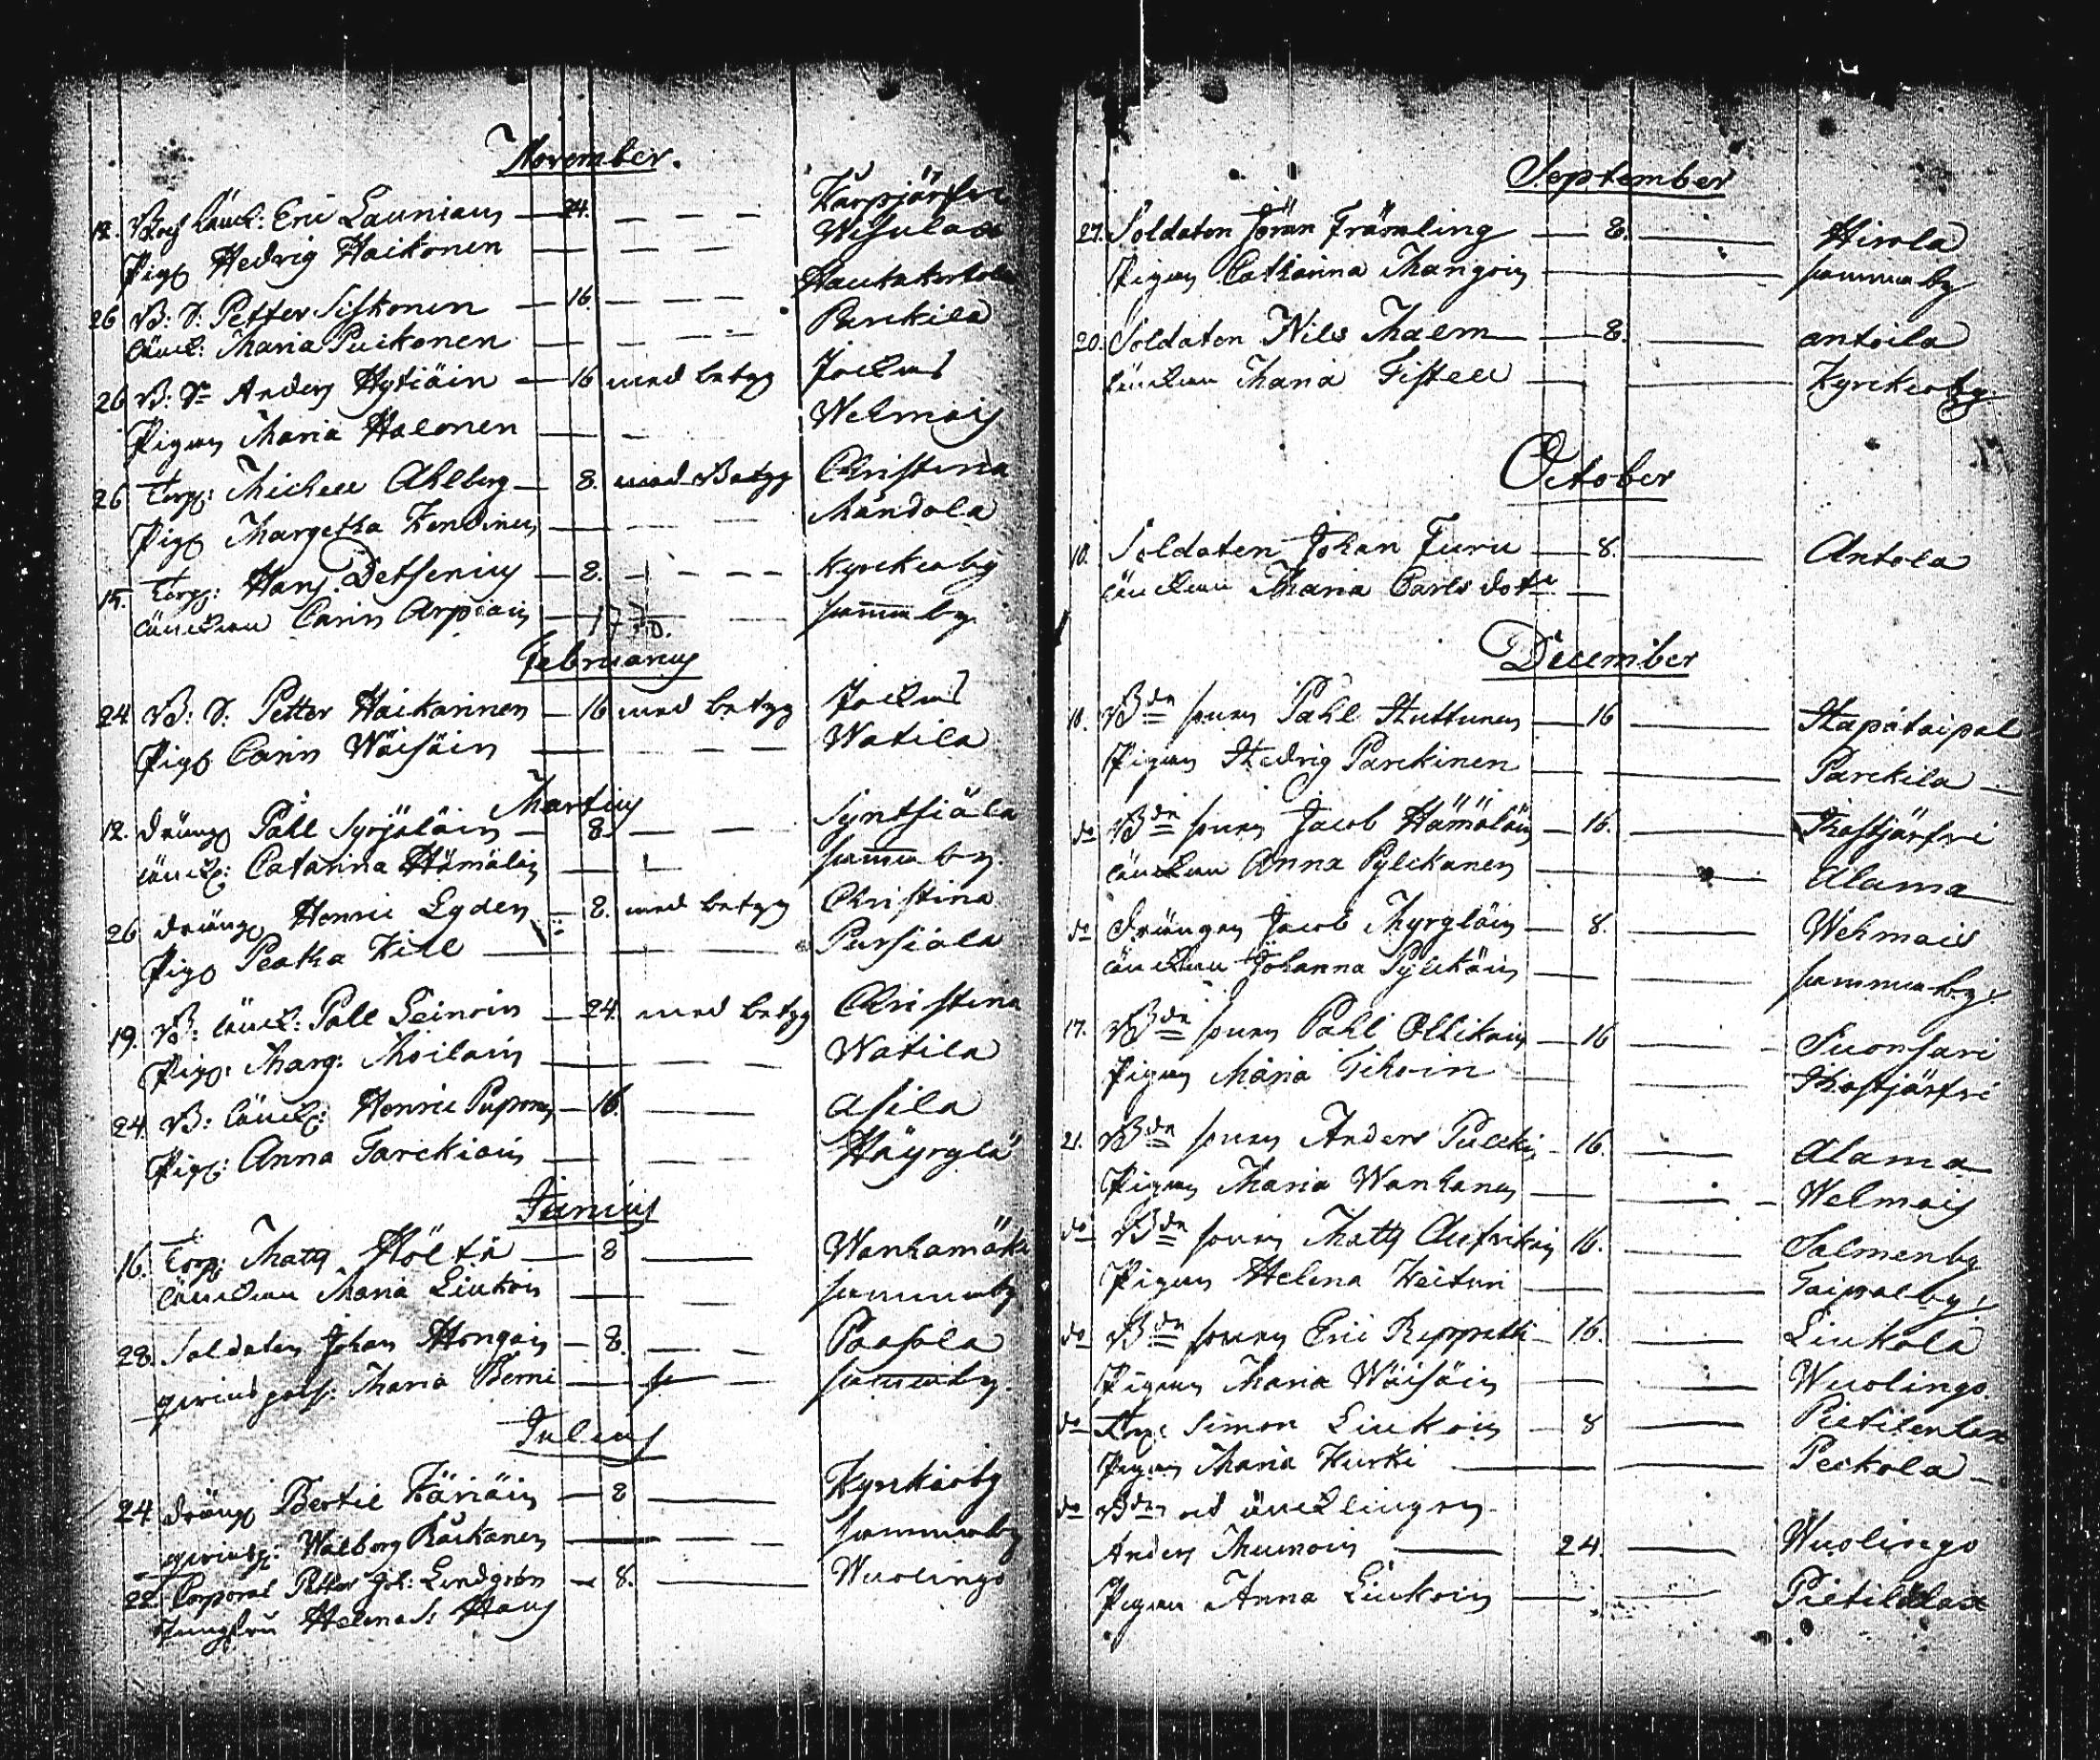 November.
12. Eric Launiain 24. Karpjärfvi
Pig: Hedvig Haikonen Wisulax
26 B: S: Petter Siskonen 16. Hauckakorhola
änck: Maria Puikonen Parckila
26 B: S: Anders Hytiäin 16 med betyg Jockas
Pigan Maria Halonen Wehmais
26 Torp: Michell Ahlberg 8. med Betyg Christina
Pig: Margetha Kendinen Mandola
15. Torp: Hans Detsenius 8. Kyrckoby
änckan Carin Arpiain samma by
17
Februarius
24 B: S: Petter Haikarinen 16 med betyg Jockas
Pig: Carin Wäisäin Watila
Martius
12. dräng: Påll Syrjäläin 8. Syntsiälä
änck: Catarina Hämäläin samma by.
26 dräng: Henric Lyden 8. med betyg Christina
Pig: Beatha Kill Pursiala
19. B: änck: Påll Leinoin 24. med betyg Christina
Pig: Marg: Moilain Watila
24. B: änck: Henric Puponen 16. Asila
Pig: Anna Tarckiain Häyrylä
Junius
16. Torp: Matts Höltä 8 Wanhamäki
änckan Maria Liukoin samma by
28. Soldaten Johan Hongain 8. Paasola
qvinspers: Maria Berni samma by.
Julius
24 dräng: Bertil Käriäin 8 Kyrckoby
qvinsp: Walborg Räikänen samma by
22. Corporal Petter Joh: Lindgren 8. Wuolingo
Jungfru Helena S: Haus
September
27. Soldaten Jöran Främling 8. Hirola
Pigan Catharina Mangoin samma by
20. Soldaten Nils Malm 8. antoila
änckan Maria Fistell Kyrckoby
October
10. Soldaten Johan Furu 8. Antola
änckan Maria Carlsdotr
December
10. Bdn sonen Påhl Huttunen 16 Hapataipal
Pigan Hedvig Parckinen Parckila
do Bdn sonen Jacob Hämäläin 16. Kostjärfvi
änckan Anna Pylckänen Alama
do Drängen Jacob Myryläin 8. Wehmais
änckan Johanna Pylckäin samma by
17. Bdn sonen Pahl Ollikain 16 Suonsari
Pigan Maria Tihoin Kostjärfvi
21. Bdn sonen Anders Pulcki 16. Alama
Pigan Maria Wanhanen Wehmais
do Bdn sonen Matts Aufvikin 16. Salmenby
Pigan Helena Keituri Taipalby
do Bdn sonen Eric Reppretti 16. Liukola
Pigan Maria Wäisäin Wuolingo.
do Torp: Simon Liukoin 8 Pietilenlax
Pigan Maria Kurki Peckola
do Bdn och äncklingen
Anders Mumoin 24. Wuolingo
Pigan Anna Liukoin Pietilälax